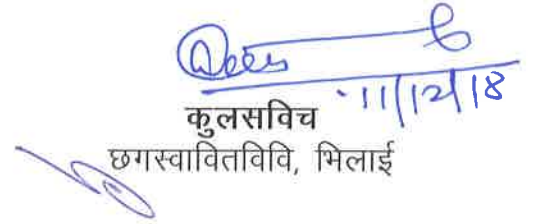 11/12/18
कुलसविच
छगस्वावितविवि, भिलाई